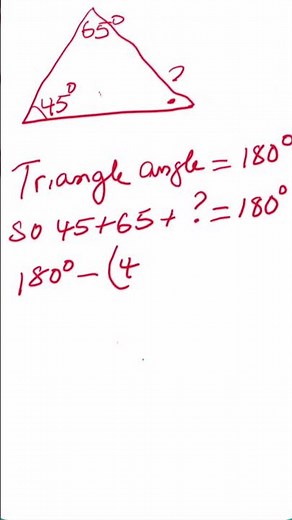 65°
?
45°
Triangle angle = 180°
so 45+65+ ? = 180°
180° - (4